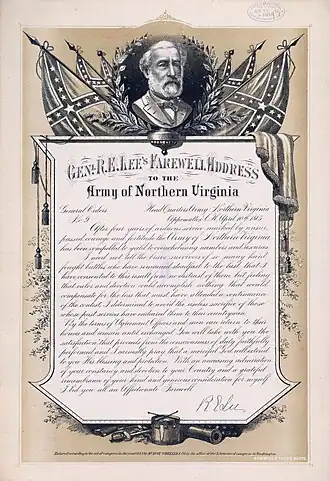 GENL R. E. LEE'S FAREWELL ADDRESS
TO THE
Army of Northern Virginia
General Orders Head Quarters Army Northern Virginia
No. 9 Appomattox C.H. April 10th 1865
After four years of arduous service marked by unsur-
passed courage and fortitude the Army of Northern Virginia
has been compelled to yield to overwhelming numbers and resources
I need not tell the brave survivors of so many hard
fought battles who have remained steadfast to the last that I
have consented to this result from no distrust of them but feeling
that valor and devotion could accomplish nothing that would
compensate for the loss that must have attended a continuance
of the contest, I determined to avoid the useless sacrifice of those
whose past services have endeared them to their countrymen
By the terms of Agreement Officers and men can return to their
homes and remain until exchanged. You will take with you the
satisfaction that proceeds from the consciousness of duty faithfully
performed and I earnestly pray that a merciful God will extend
to you His blessing and protection. With an unceasing admiration
of your constancy and devotion to your Country and a grateful
remembrance of your kind and generous consideration for myself
I bid you all an Affectionate Farewell
R E Lee
Entered according to the act of congress in the year in the office of the Librarian of congress at Washington